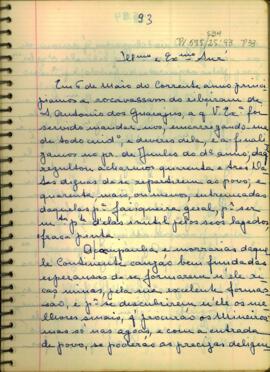 93
Illmo e Exmo Snr
Em 6 de Maio do Corrente anno princi
piamos a rocar
do ribeiram de
S. Antonio dos Guarujus, a q V. Exa foi
servido mandar nos, encarregando nos
de todo cuido, e deveres dila, e a finali
zamos no pr. de Junho do do anno; das
rezultou acharmos quarenta e tres Da
tas dignas de se repartirem ao povo, e
quarenta, mais, menos, entermeadas
daquelas pa faisqueira geral, pr ser
mta pte delas inutil pelos seus lagedos,
e fraca pinta.
A campanha, e morrarias daque
le Continente cauzão bem fundadas
esperansas de se formarem n'ele ri
cas minas, pela sua excelente forma
são, e pr se descubrirem n'ele os me
lhores sinais, q procurão os Mineiros
mas só nas agoas, e com a entrada
do povo, se poderás as precizas deligen